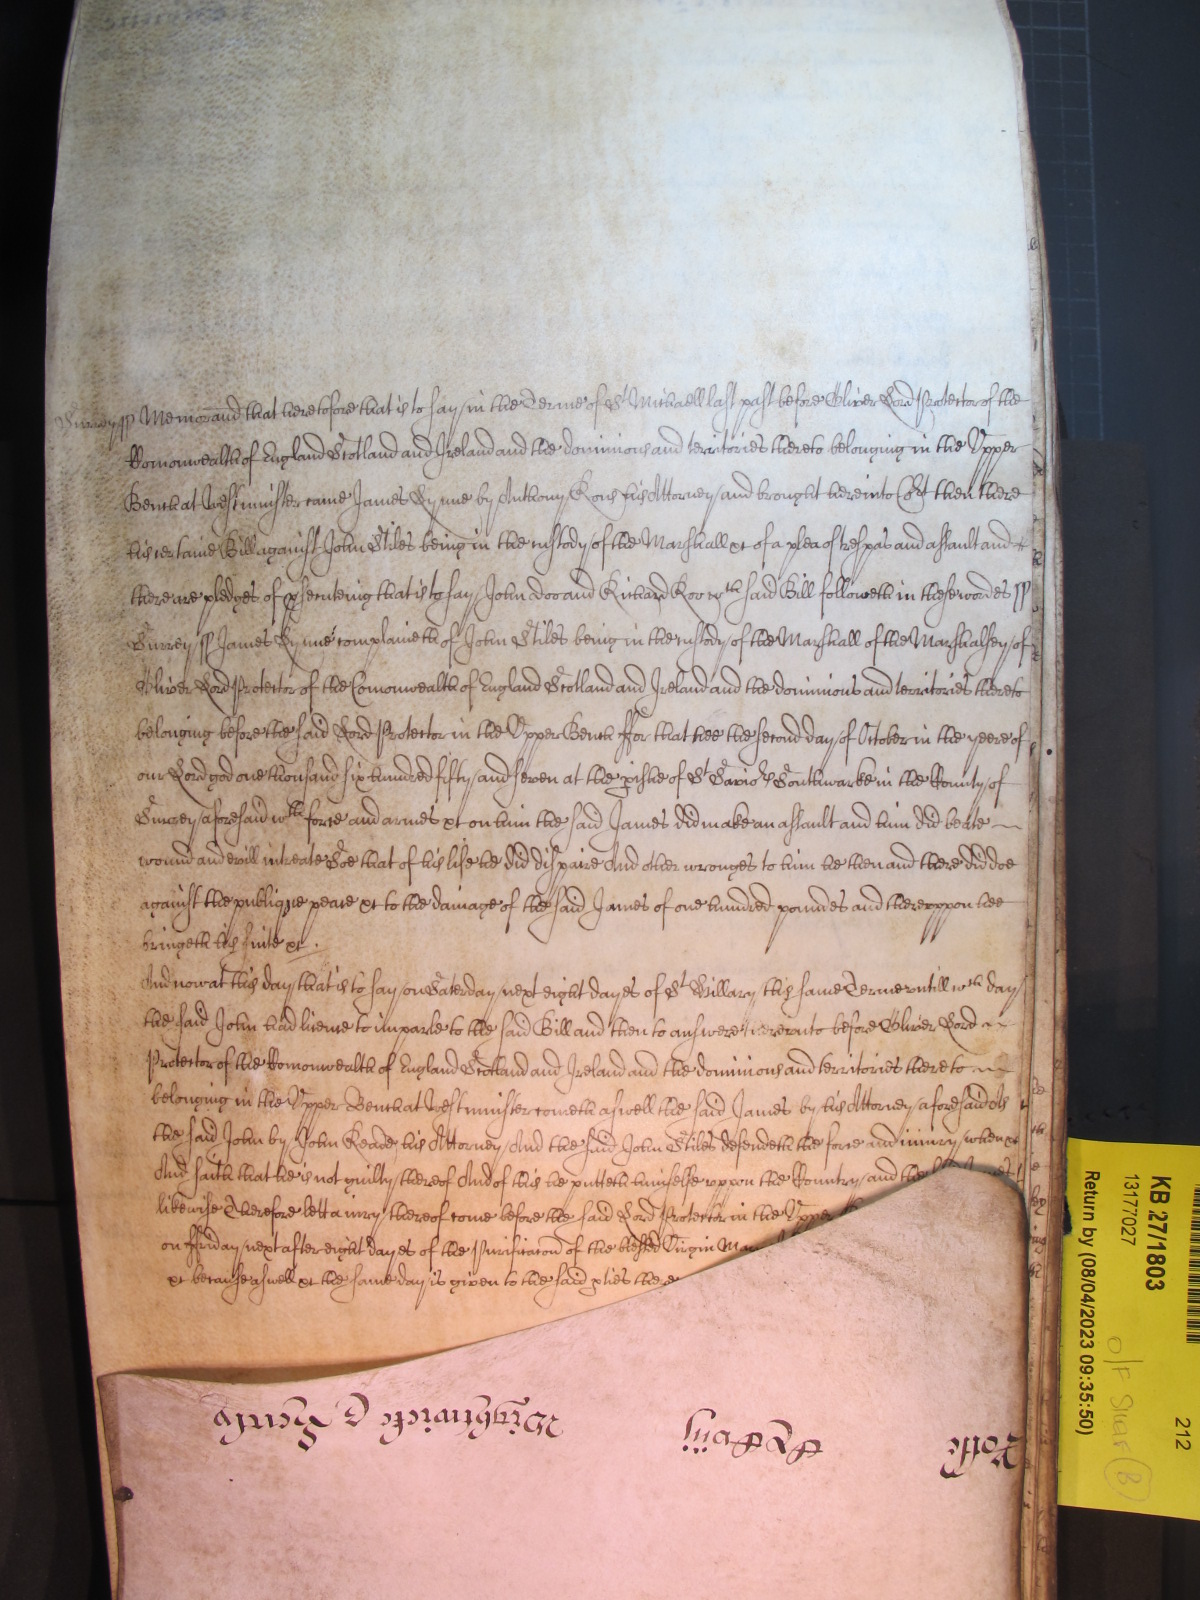 Surrey ss Memorand that heretofore that is to say in the Terme of St Michaell last past before Oliver Lord Protector of the
Comonwealth of England Scotland and Ireland and the dominions and territories thereto belonging in the Upper
Bench at Westminster came James Gynne by Anthony his Attorney and brought here into Cort then there
his certaine Bill against John Stiles being in the custody of the Marshall &c of a plea of trespas and assault and
there are pledges of prsecuteing that is to say John Doo and Richard Roo wch said Bill followeth in these wordes ss
Surrey ss James Gynne complaineth of John Stiles being in the custody of the Marshall of the Marshalsey of
Oliver Lord Protector of the Comonwealth of England Scotland and Ireland and the dominions and territories thereto
belonging before the said Lord Protector in the Upper Bench ffor that hee the second day of October in the yeere of
our Lord god one thousand six hundred fifty and seven at the prishe of St Saviors Southwarke in the County of
Surrey aforesaid wth force and armes &c on him the said James did make an assault and him did beate
wound and evill intreate Soe that of his life he did dispaire And other wronges to him he then and there did doe
against the publique peace &c to the damage of the said James of one hundred poundes and thereuppon hee
bringeth his suite &c.
And now at this day that is to say on Saterday next eight dayes of St Hillary this same Terme untill wch day
the said John had licence to imparle to the said Bill and then to answere hereunto before Oliver Lord
Protector of the Comonwealth of England Scotland and Ireland and the dominions and territories thereto
belonging in the Upper Bench at Westminster cometh aswell the said James by his Attorney aforesaid As
the said John by John Reade his Attorney And the said John Stiles defendeth the force and iniury when &c
And saith that he is not guilty thereof And of this he putteth himselfe uppon the Country and the
likewise Therefore lett a iury thereof come before the said Lord Protector in the Upper
on ffriday next after eight dayes of the Purificacon of the blessed Virgin
&c because aswell &c the same day is given to the said pties there
Wightwicke &
Rolle
KB 27/1803
13177027
Return by (08/04/2023 09:35:50)
212
O/F Shelf B